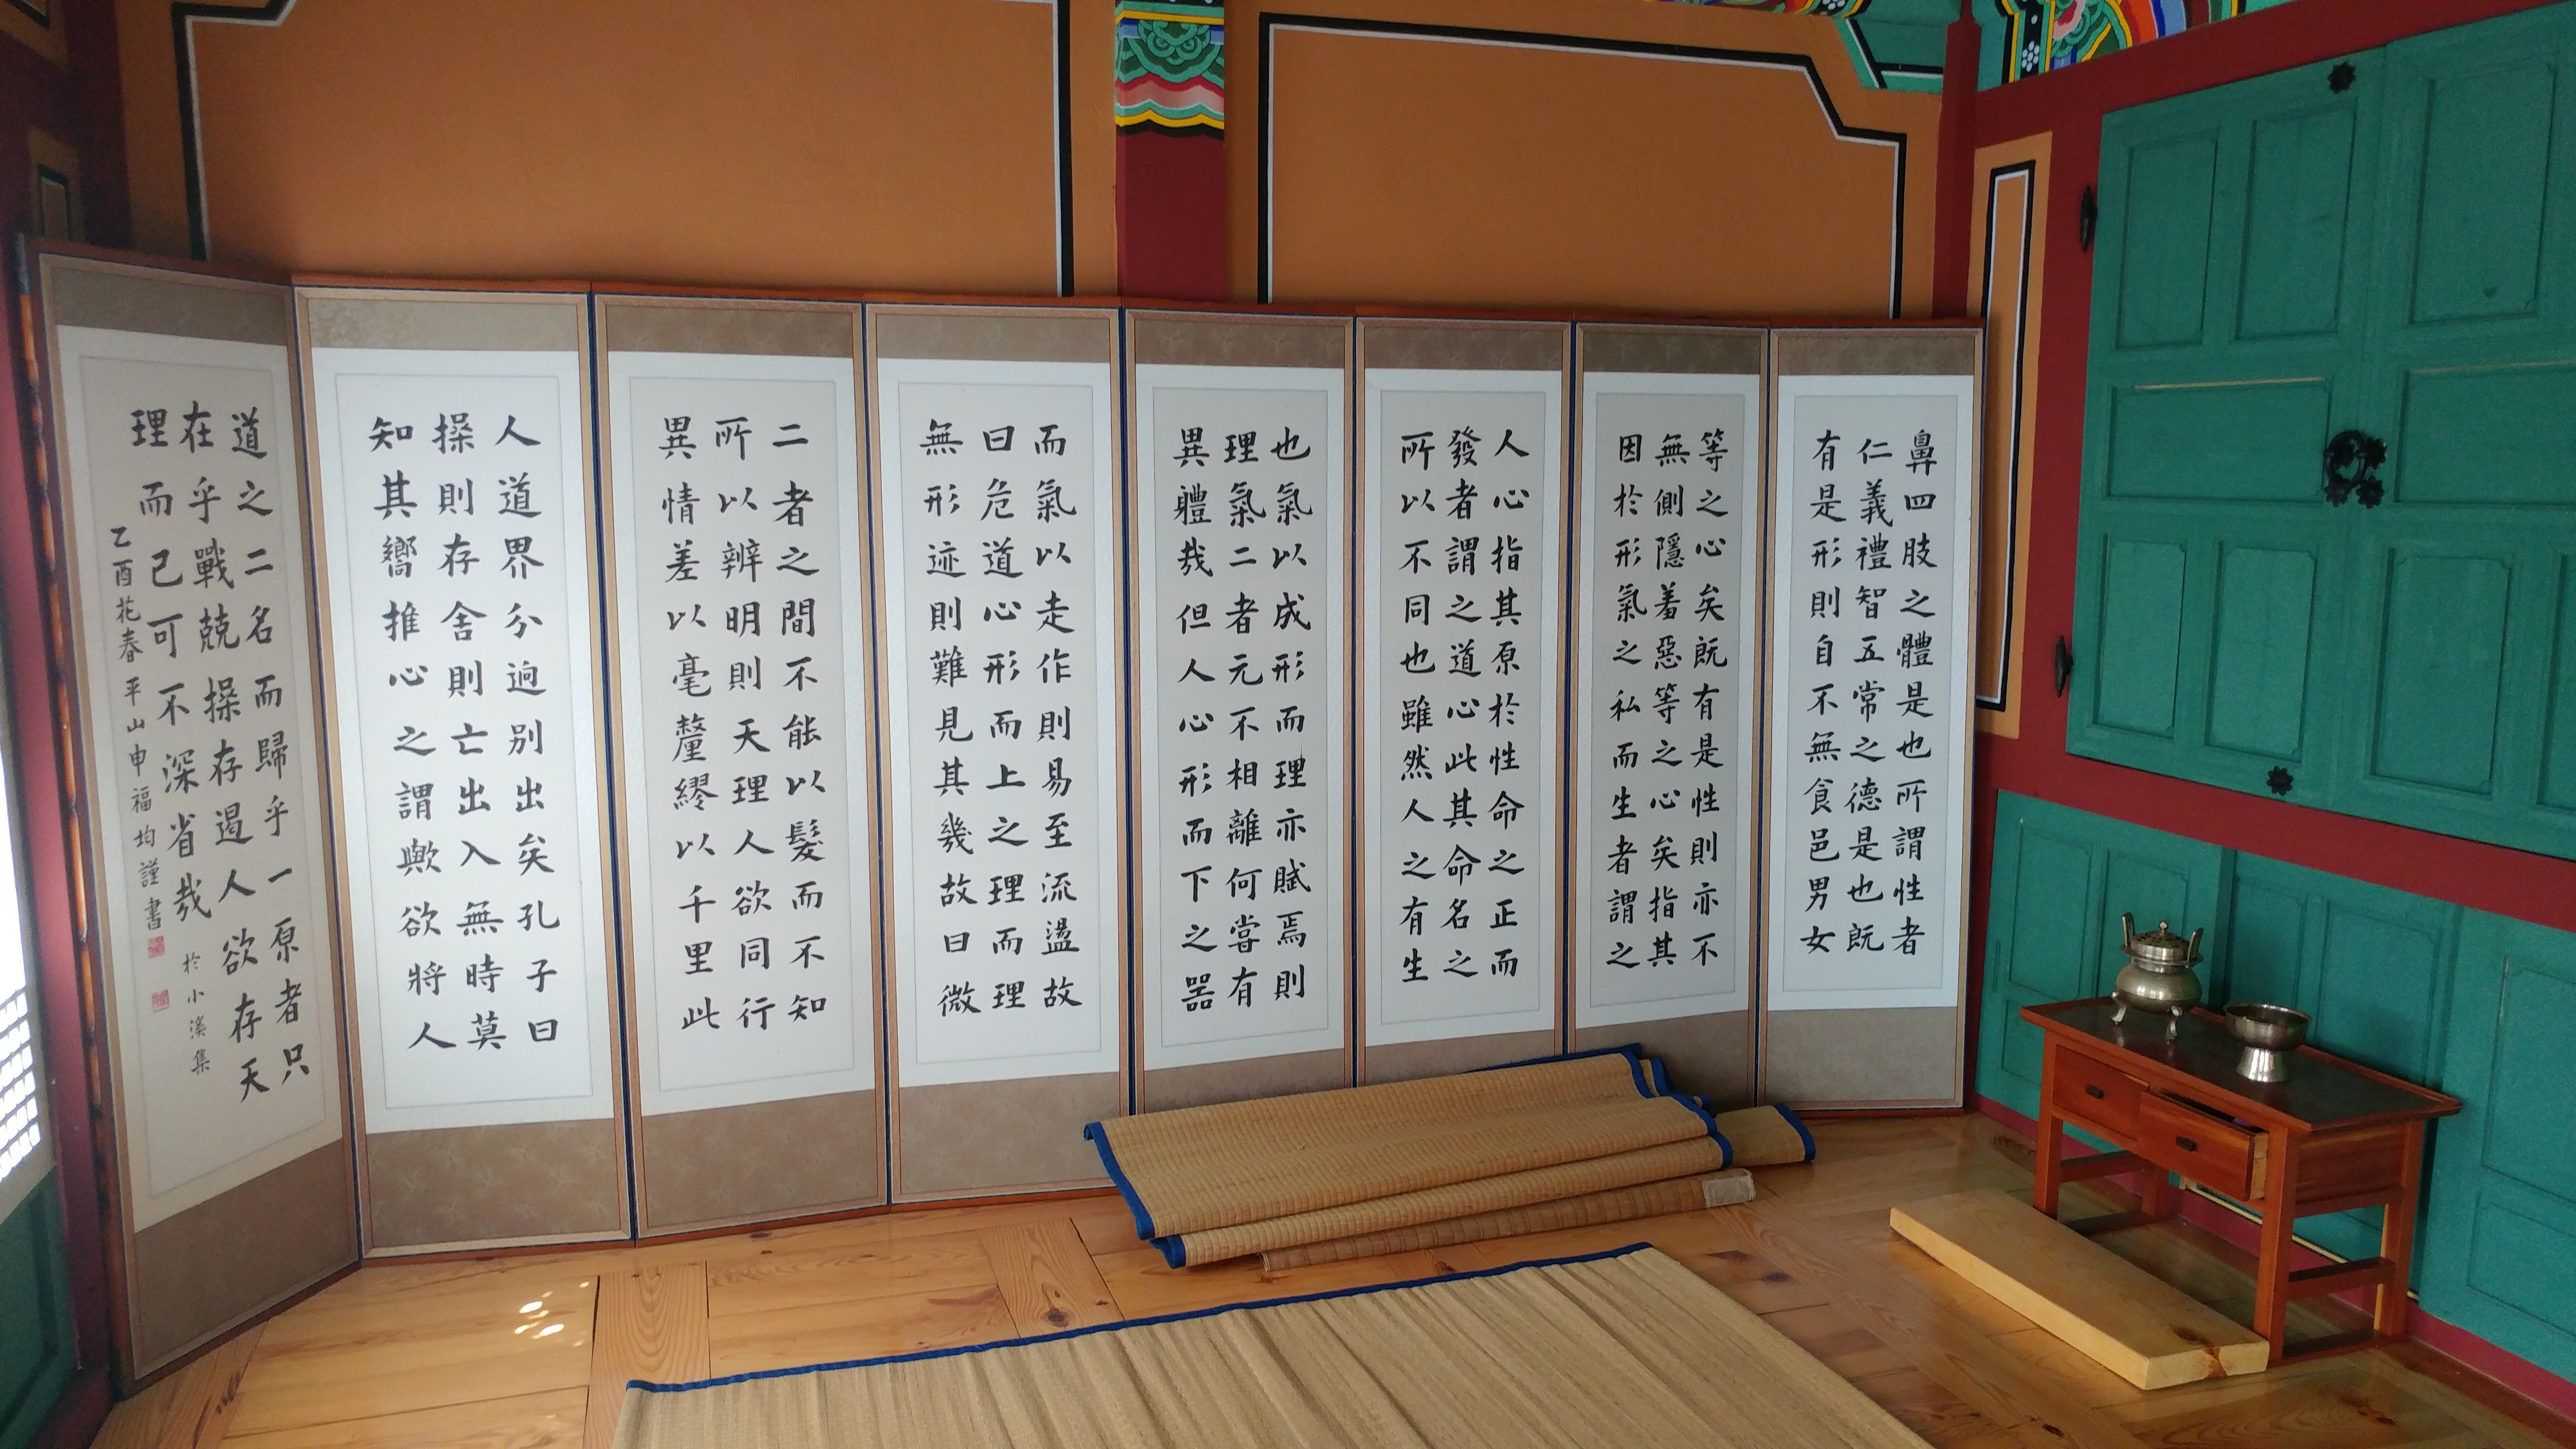 鼻四肢之體是也所謂性者
仁義禮智五常之德是也既
有是形則自不無食邑男女
等之心矣既有是性則亦不
無側隱羞惡等之心矣指其
因於形氣之私而生者謂之
人心指其原於性命之正而
發者謂之道心此其命名之
所以不同也雖然人之有生
也氣以成形而理亦賦焉則
理氣二者元不相離何嘗有
異體哉但人心形而下之器
而氣以走作則易至流盪故
曰危道心形而上之理而理
無形迹則難見其幾故曰微
二者之間不能以髮而不知
所以辨明則天理人欲同行
異情差以毫釐繆以千里此
人道界分逈別出矣孔子曰
操則存舍則亡出入無時莫
知其嚮推心之謂歟欲將人
道之二名而歸乎一原者只
在乎戰兢操存遏人欲存天
理而已可不深省哉 於小溪集
乙酉花春 平山申福均謹書